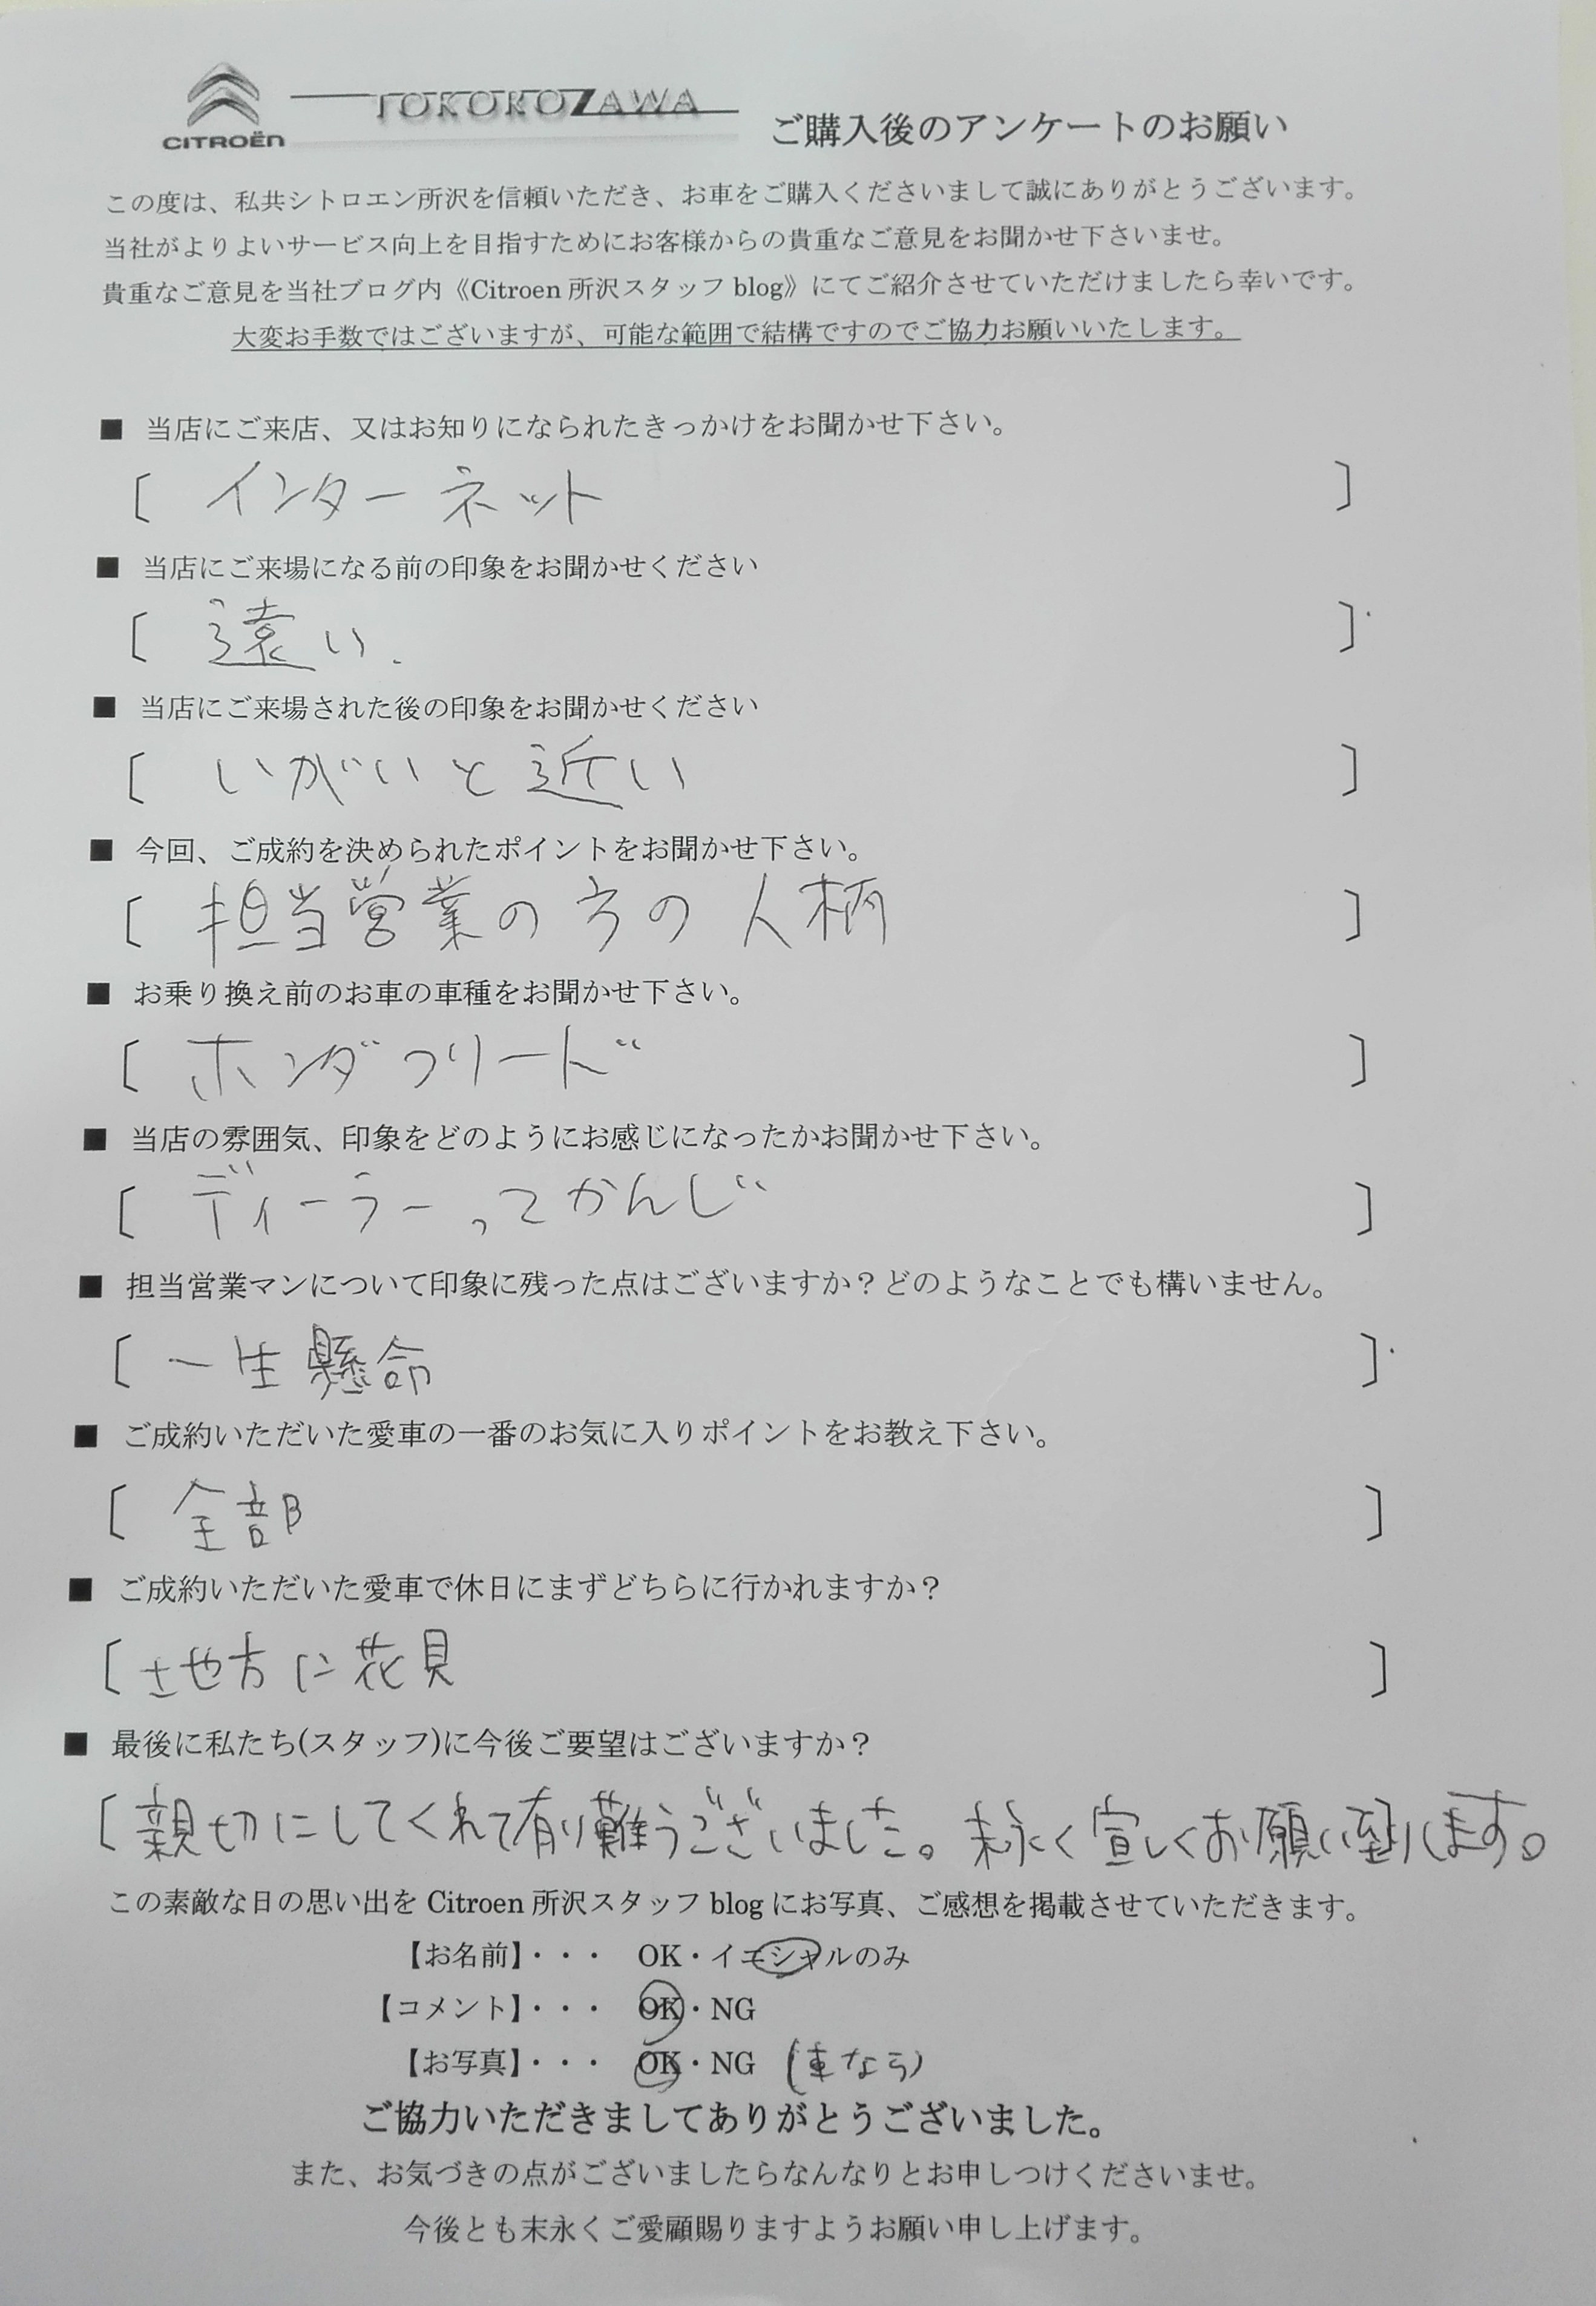 CITROËN TOKOROZAWA ご購入後のアンケートのお願い
この度は、私共シトロエン所沢を信頼いただき、お車をご購入くださいまして誠にありがとうございます。
当社がよりよいサービス向上を目指すためにお客様からの貴重なご意見をお聞かせ下さいませ。
貴重なご意見を当社ブログ内《Citroen 所沢スタッフ blog》にてご紹介させていただけましたら幸いです。
大変お手数ではございますが、可能な範囲で結構ですのでご協力お願いいたします。
■ 当店にご来店、又はお知りになられたきっかけをお聞かせ下さい。
〔 インターネット 〕
■ 当店にご来場になる前の印象をお聞かせください
〔 遠い. 〕
■ 当店にご来場された後の印象をお聞かせください
〔 いがいと近い 〕
■ 今回、ご成約を決められたポイントをお聞かせ下さい。
〔 担当営業の方の人柄 〕
■ お乗り換え前のお車の車種をお聞かせ下さい。
〔 ホンダフリード 〕
■ 当店の雰囲気、印象をどのようにお感じになったかお聞かせ下さい。
〔 ディーラーってかんじ 〕
■ 担当営業マンについて印象に残った点はございますか？どのようなことでも構いません。
〔 一生懸命 〕
■ ご成約いただいた愛車の一番のお気に入りポイントをお教え下さい。
〔 全部 〕
■ ご成約いただいた愛車で休日にまずどちらに行かれますか？
〔 地方に花見 〕
■ 最後に私たち(スタッフ)に今後ご要望はございますか？
〔 親切にしてくれて有り難うございました。末永く宜しくお願い致します。
この素敵な日の思い出を Citroen 所沢スタッフ blog にお写真、ご感想を掲載させていただきます。
【お名前】・・・ OK・イニシャルのみ
【コメント】・・・ OK・NG
【お写真】・・・ OK・NG (車なら)
ご協力いただきましてありがとうございました。
また、お気づきの点がございましたらなんなりとお申しつけくださいませ。
今後とも末永くご愛顧賜りますようお願い申し上げます。